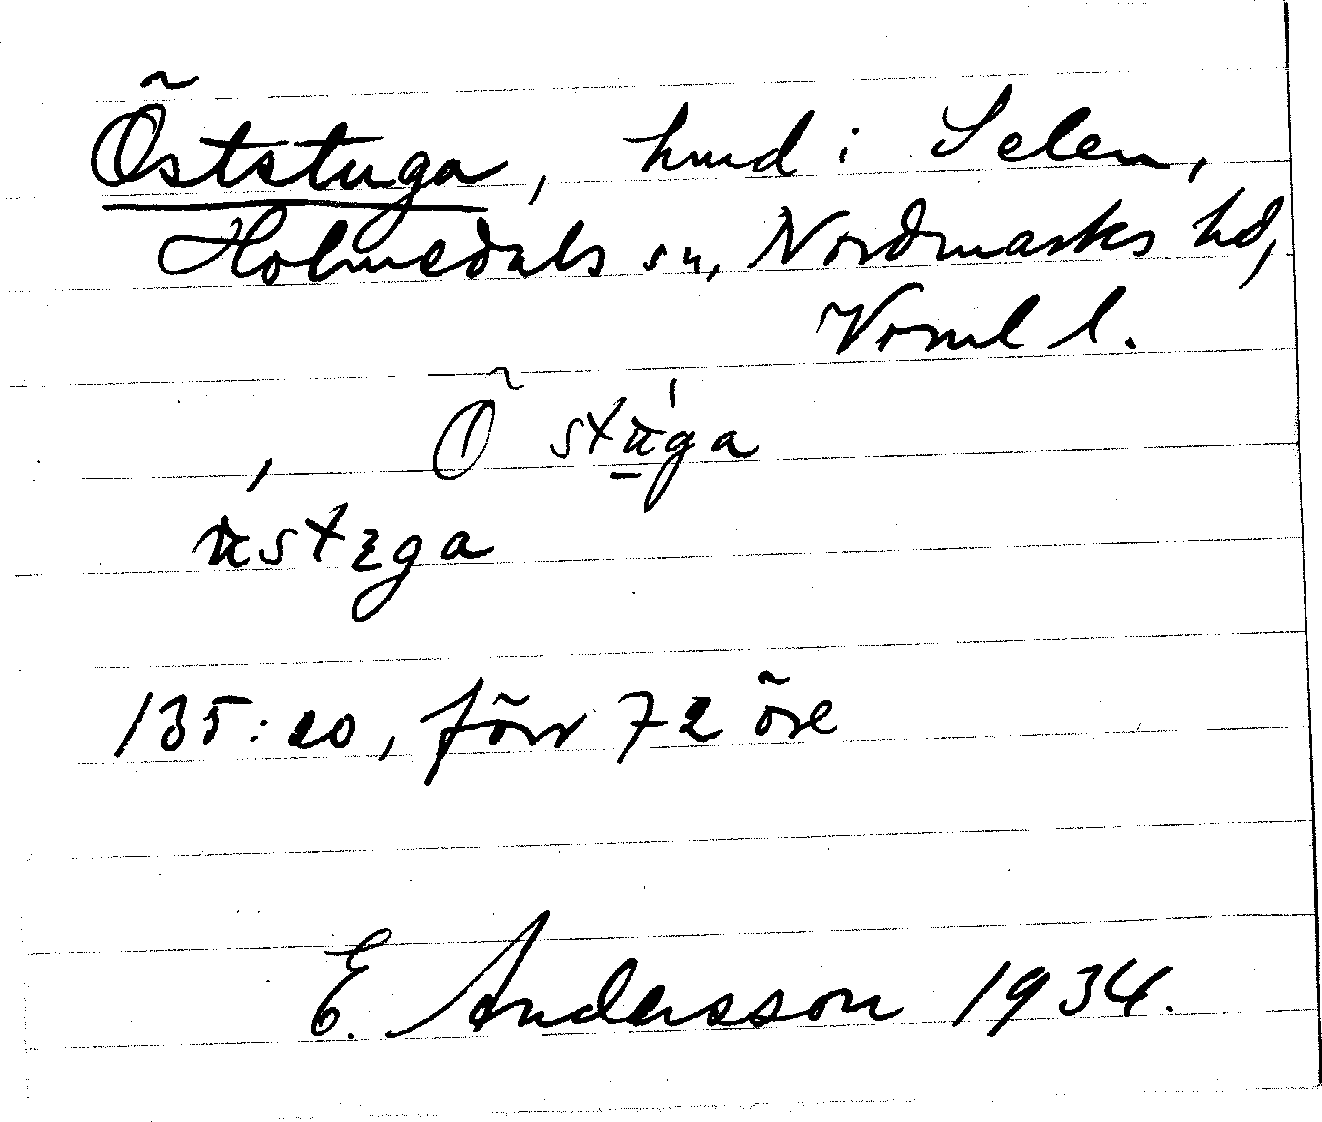 Õststuga, hmd i Selen,
Holmedals sn, Nordmarks hd,
Vrml l.
Õ
135:20, förr 72 öre
E. Andersson 1934.